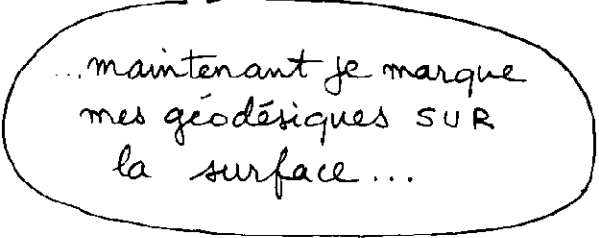 ...maintenant je marque
mes géodésiques SUR
la surface...